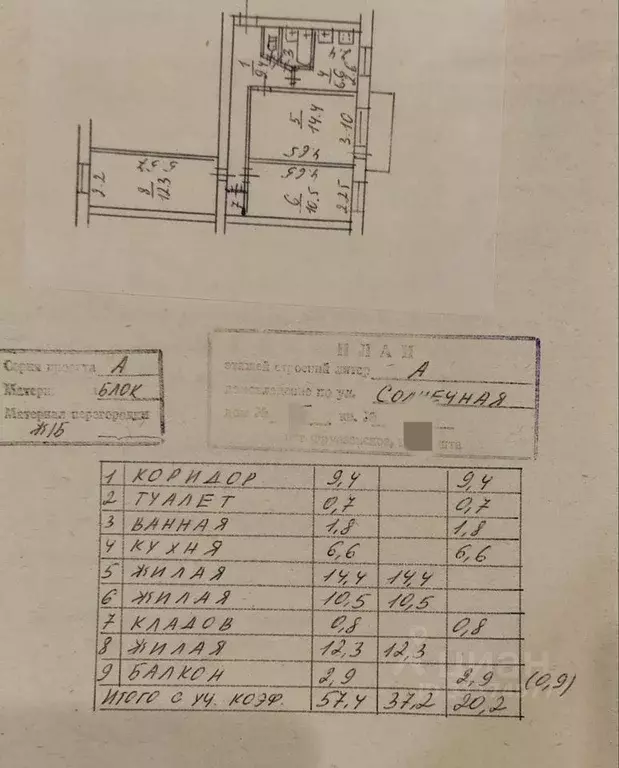 1
9.4
4
6.6
5
14.4
3.10
4.65
4.65
6
10.5
2.25
7
8
12.3
2.2
Серия проекта А
Матери БЛОК
Материал перегородки
Ж/Б
ПЛАН
этажей строений литер А
домовладение по ул. СОЛНЕЧНАЯ
дом №
1 КОРИДОР 9,4 9,4
2 ТУАЛЕТ 0,7 0,7
3 ВАННАЯ 1,8 1,8
4 КУХНЯ 6,6 6,6
5 ЖИЛАЯ 14,4 14,4
6 ЖИЛАЯ 10,5 10,5
7 КЛАДОВ 0,8 0,8
8 ЖИЛАЯ 12,3 12,3
циан
9 БАЛКОН 2,9 2,9 (0,9)
ИТОГО С УЧ. КОЭФ. 57,4 37,2 20,2